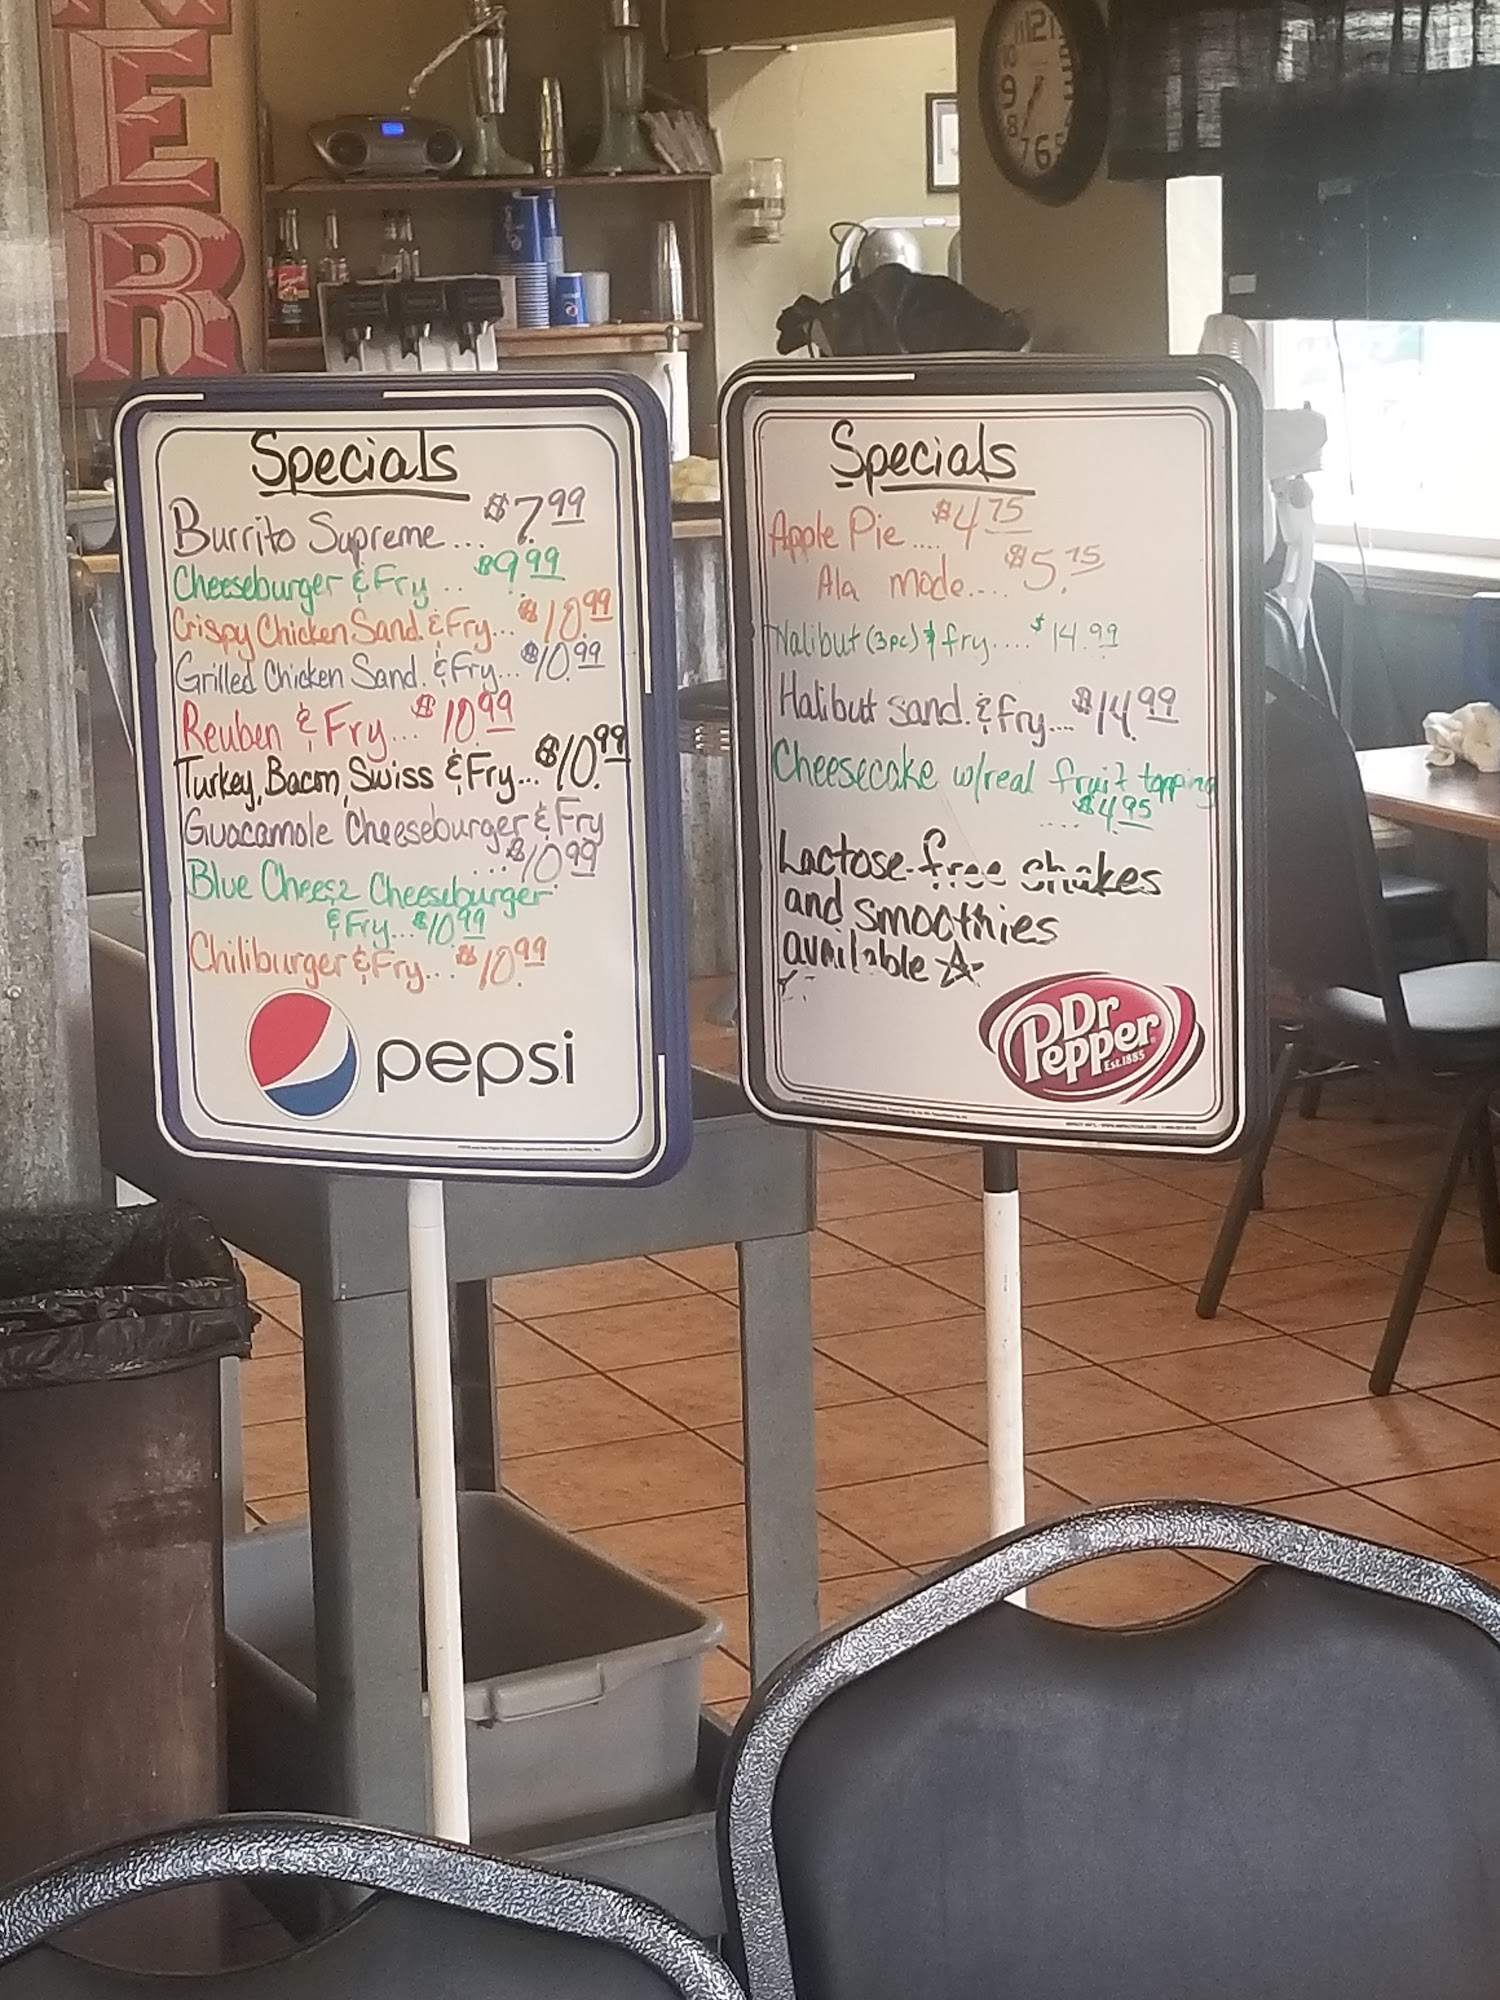 ER
12
10
9
8
7
6
5
Specials
Burrito Supreme... $7.99
Cheeseburger & Fry... $9.99
Crispy Chicken Sand. & Fry... $10.99
Grilled Chicken Sand. & Fry... $10.99
Reuben & Fry... $10.99
Turkey, Bacon, Swiss & Fry... $10.99
Guacamole Cheeseburger & Fry
... $10.99
Blue Cheese Cheeseburger
& Fry... $10.99
Chiliburger & Fry... $10.99
pepsi
Specials
Apple Pie.... $4.75
Ala mode.... $5.75
Halibut (3pc) & fry.... $14.99
Halibut sand. & fry.... $14.99
Cheesecake w/real fruit topping
.... $4.95
Lactose-free shakes
and smoothies
available
Dr
Pepper
Est. 1885